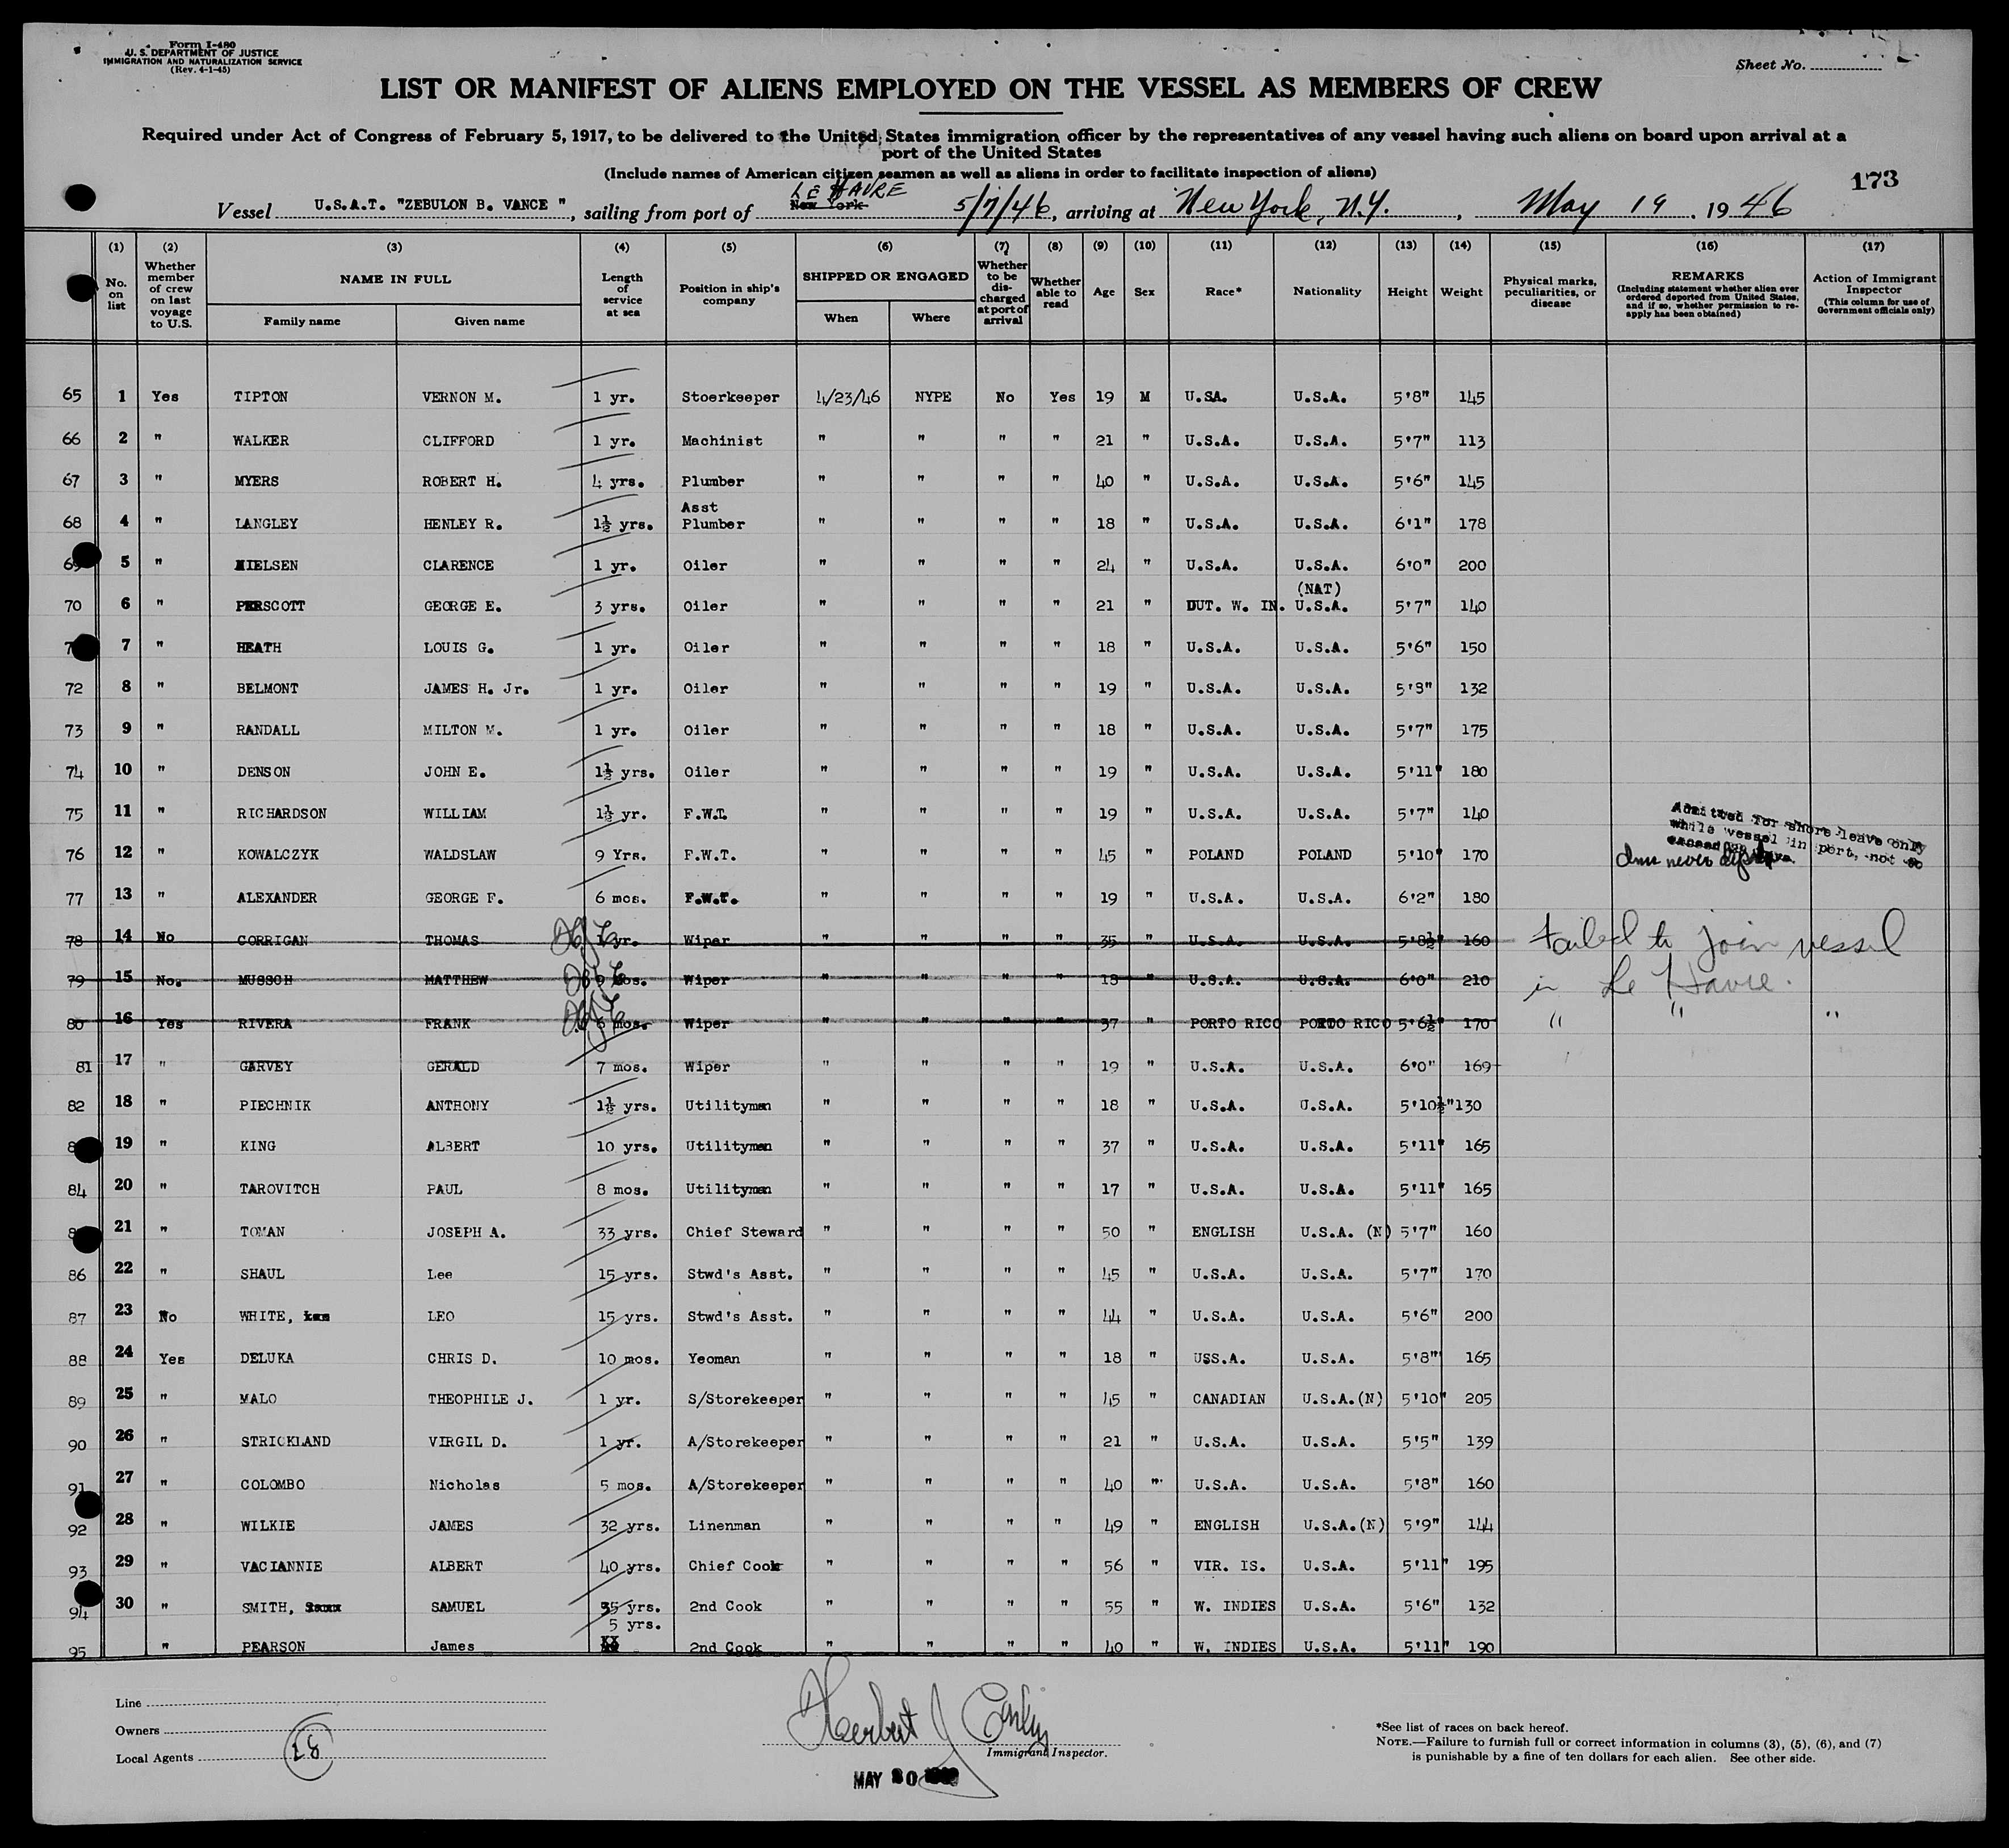 Form I-480
U. S. DEPARTMENT OF JUSTICE
IMMIGRATION AND NATURALIZATION SERVICE
(Rev. 4-1-45)
Sheet No.
LIST OR MANIFEST OF ALIENS EMPLOYED ON THE VESSEL AS MEMBERS OF CREW
Required under Act of Congress of February 5, 1917, to be delivered to the United States immigration officer by the representatives of any vessel having such aliens on board upon arrival at a
port of the United States
(Include names of American citizen seamen as well as aliens in order to facilitate inspection of aliens)
173
LE HAVRE
Vessel U.S.A.T. "ZEBULON B. VANCE ", sailing from port of New York 5/7/46, arriving at New York, N.Y., May 19, 1946
(1) (2) (3) (4) (5) (6) (7) (8) (9) (10) (11) (12) (13) (14) (15) (16) (17)
No. on list
Whether member of crew on last voyage to U.S.
NAME IN FULL
Family name
Given name
Length of service at sea
Position in ship's company
SHIPPED OR ENGAGED
When
Where
Whether to be discharged at port of arrival
Whether able to read
Age
Sex
Race*
Nationality
Height
Weight
Physical marks, peculiarities, or disease
REMARKS
(Including statement whether alien ever ordered deported from United States, and if so, whether permission to reapply has been obtained)
Action of Immigrant Inspector
(This column for use of Government officials only)
65 1 Yes TIPTON VERNON M. 1 yr. Stoerkeeper 4/23/46 NYPE No Yes 19 M U.SA. U.S.A. 5'8" 145
66 2 " WALKER CLIFFORD 1 yr. Machinist " " " " 21 " U.S.A. U.S.A. 5'7" 113
67 3 " MYERS ROBERT H. 4 yrs. Plumber " " " " 40 " U.S.A. U.S.A. 5'6" 145
68 4 " LANGLEY HENLEY R. 1½ yrs. Asst Plumber " " " " 18 " U.S.A. U.S.A. 6'1" 178
69 5 " NIELSEN CLARENCE 1 yr. Oiler " " " " 24 " U.S.A. U.S.A. 6'0" 200
70 6 " PERSCOTT GEORGE E. 3 yrs. Oiler " " " " 21 " DUT. W. IN. (NAT) U.S.A. 5'7" 140
7 7 " HEATH LOUIS G. 1 yr. Oiler " " " " 18 " U.S.A. U.S.A. 5'6" 150
72 8 " BELMONT JAMES H. Jr. 1 yr. Oiler " " " " 19 " U.S.A. U.S.A. 5'8" 132
73 9 " RANDALL MILTON M. 1 yr. Oiler " " " " 18 " U.S.A. U.S.A. 5'7" 175
74 10 " DENSON JOHN E. 1½ yrs. Oiler " " " " 19 " U.S.A. U.S.A. 5'11" 180
75 11 " RICHARDSON WILLIAM 1½ yr. F.W.T. " " " " 19 " U.S.A. U.S.A. 5'7" 140
Admitted for shore leave only
while vessel in port, not to
76 12 " KOWALCZYK WALDSLAW 9 Yrs. F.W.T. " " " " 45 " POLAND POLAND 5'10" 170
77 13 " ALEXANDER GEORGE F. 6 mos. F.W.T. " " " " 19 " U.S.A. U.S.A. 6'2" 180
78 14 No CORRIGAN THOMAS 1 yr. Wiper " " " " 35 " U.S.A. U.S.A. 5'8½" 160 Failed to join vessel
79 15 No. MUSSCH MATTHEW mos. Wiper " " " " 18 " U.S.A. U.S.A. 6'0" 210 in Le Havre.
80 16 Yes RIVERA FRANK 6 mos. Wiper " " " " 37 " PORTO RICO PORTO RICO 5'6½" 170 " " "
81 17 " GARVEY GERALD 7 mos. Wiper " " " " 19 " U.S.A. U.S.A. 6'0" 169
82 18 " PIECHNIK ANTHONY 1½ yrs. Utilityman " " " " 18 " U.S.A. U.S.A. 5'10½" 130
8 19 " KING ALBERT 10 yrs. Utilityman " " " " 37 " U.S.A. U.S.A. 5'11" 165
84 20 " TAROVITCH PAUL 8 mos. Utilityman " " " " 17 " U.S.A. U.S.A. 5'11" 165
8 21 " TOMAN JOSEPH A. 33 yrs. Chief Steward " " " " 50 " ENGLISH U.S.A. (N) 5'7" 160
86 22 " SHAUL Lee 15 yrs. Stwd's Asst. " " " " 45 " U.S.A. U.S.A. 5'7" 170
87 23 No WHITE, LEO 15 yrs. Stwd's Asst. " " " " 44 " U.S.A. U.S.A. 5'6" 200
88 24 Yes DELUKA CHRIS D. 10 mos. Yeoman " " " " 18 " USS.A. U.S.A. 5'8" 165
89 25 " MALO THEOPHILE J. 1 yr. S/Storekeeper " " " " 45 " CANADIAN U.S.A.(N) 5'10" 205
90 26 " STRICKLAND VIRGIL D. 1 yr. A/Storekeeper " " " " 21 " U.S.A. U.S.A. 5'5" 139
91 27 " COLOMBO Nicholas 5 mos. A/Storekeeper " " " " 40 " U.S.A. U.S.A. 5'8" 160
92 28 " WILKIE JAMES 32 yrs. Linenman " " " " 49 " ENGLISH U.S.A.(N) 5'9" 144
93 29 " VACIANNIE ALBERT 40 yrs. Chief Cook " " " " 56 " VIR. IS. U.S.A. 5'11" 195
94 30 " SMITH, SAMUEL 35 yrs. 2nd Cook " " " " 55 " W. INDIES U.S.A. 5'6" 132
95 " PEARSON James 5 yrs. 2nd Cook " " " " 40 " W. INDIES U.S.A. 5'11" 190
Line
Owners
Local Agents
28
Herbert J
Immigrant Inspector.
MAY 20
*See list of races on back hereof.
NOTE.—Failure to furnish full or correct information in columns (3), (5), (6), and (7)
is punishable by a fine of ten dollars for each alien. See other side.